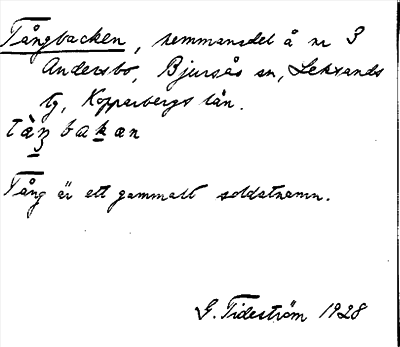 Tångbacken, hemmansdel å nr 3
Andersbo, Bjursås sn, Leksands
tg, Kopparbergs län.
Tång är ett gammalt soldatnamn.
G. Tideström 1928